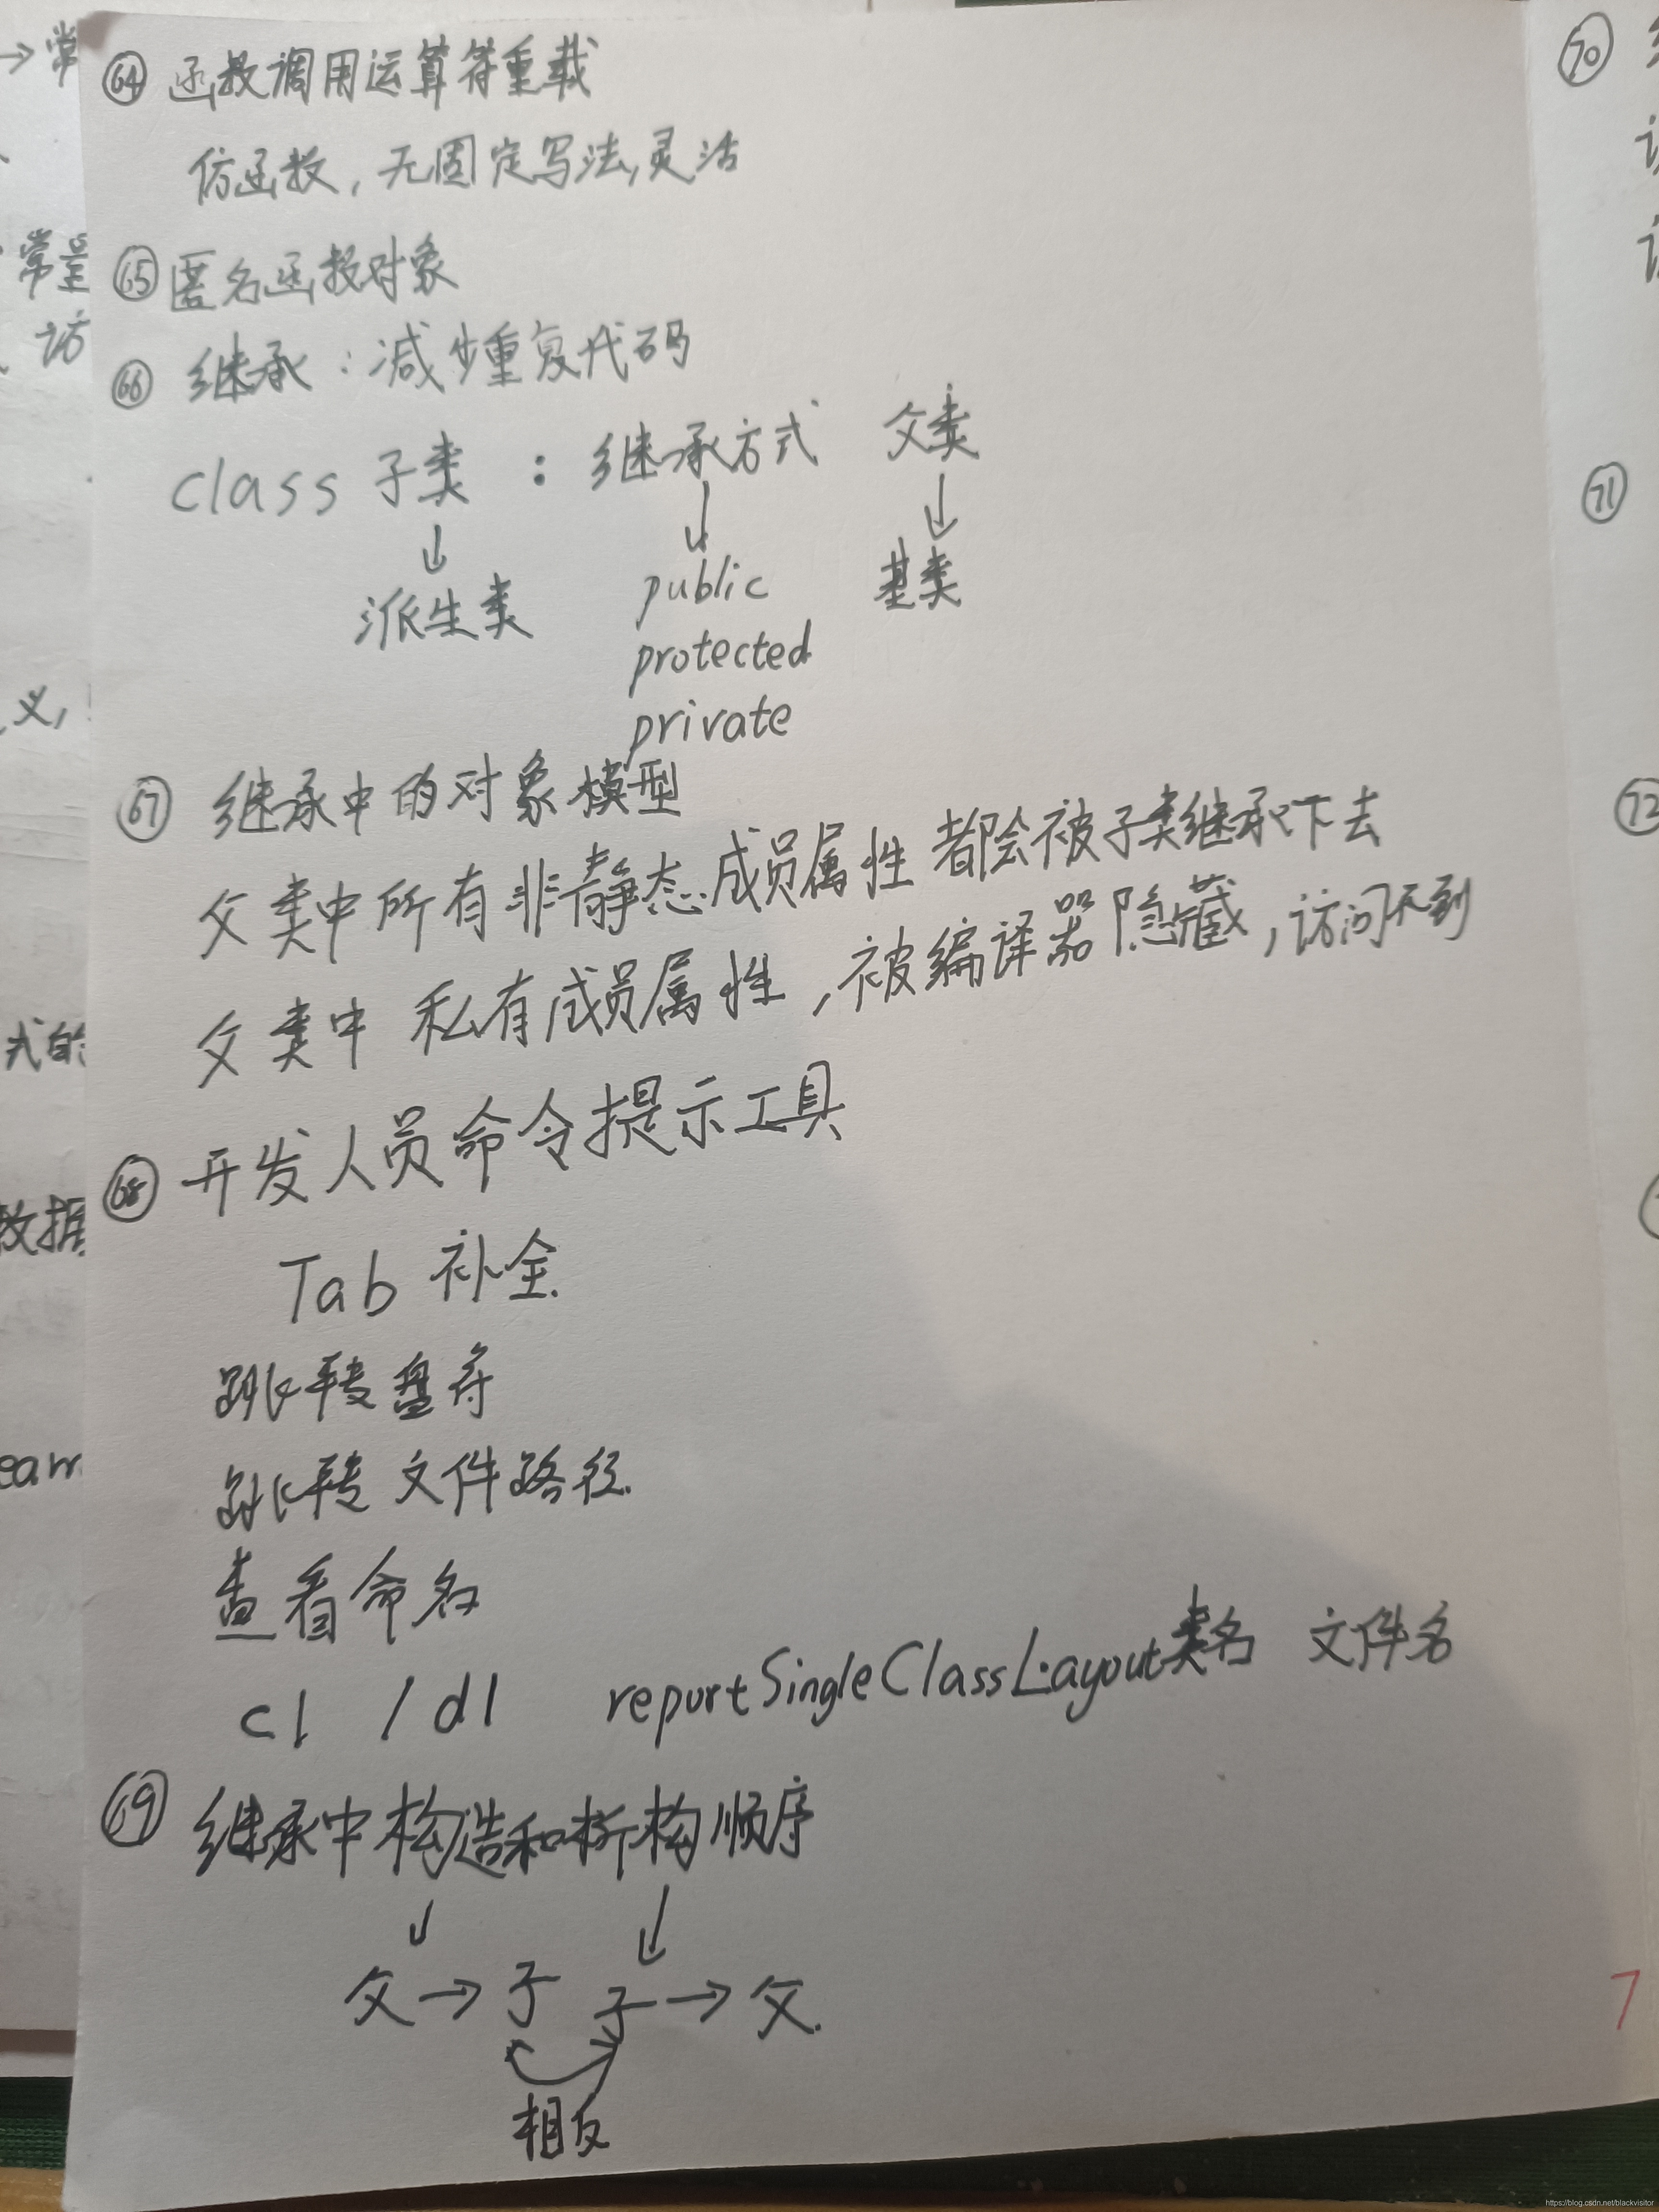 64 函数调用运算符重载
仿函数,无固定写法,灵活
65 匿名函数对象
66 继承:减少重复代码
class 子类 : 继承方式 父类
↓ ↓ ↓
派生类 public 基类
protected
private
67 继承中的对象模型
父类中所有非静态成员属性都会被子类继承下去
父类中 私有成员属性,被编译器隐藏,访问不到
68 开发人员命令提示工具
Tab 补全.
跳转盘符
跳转文件路径.
查看命名
cl /dl reportSingleClassLayout类名 文件名
69 继承中构造和析构顺序
↓ ↓
父→子 子→父.
相反
→常
常量
访
义,
式的
数据
eam
70
71
72
7
https://blog.csdn.net/blackvisitor